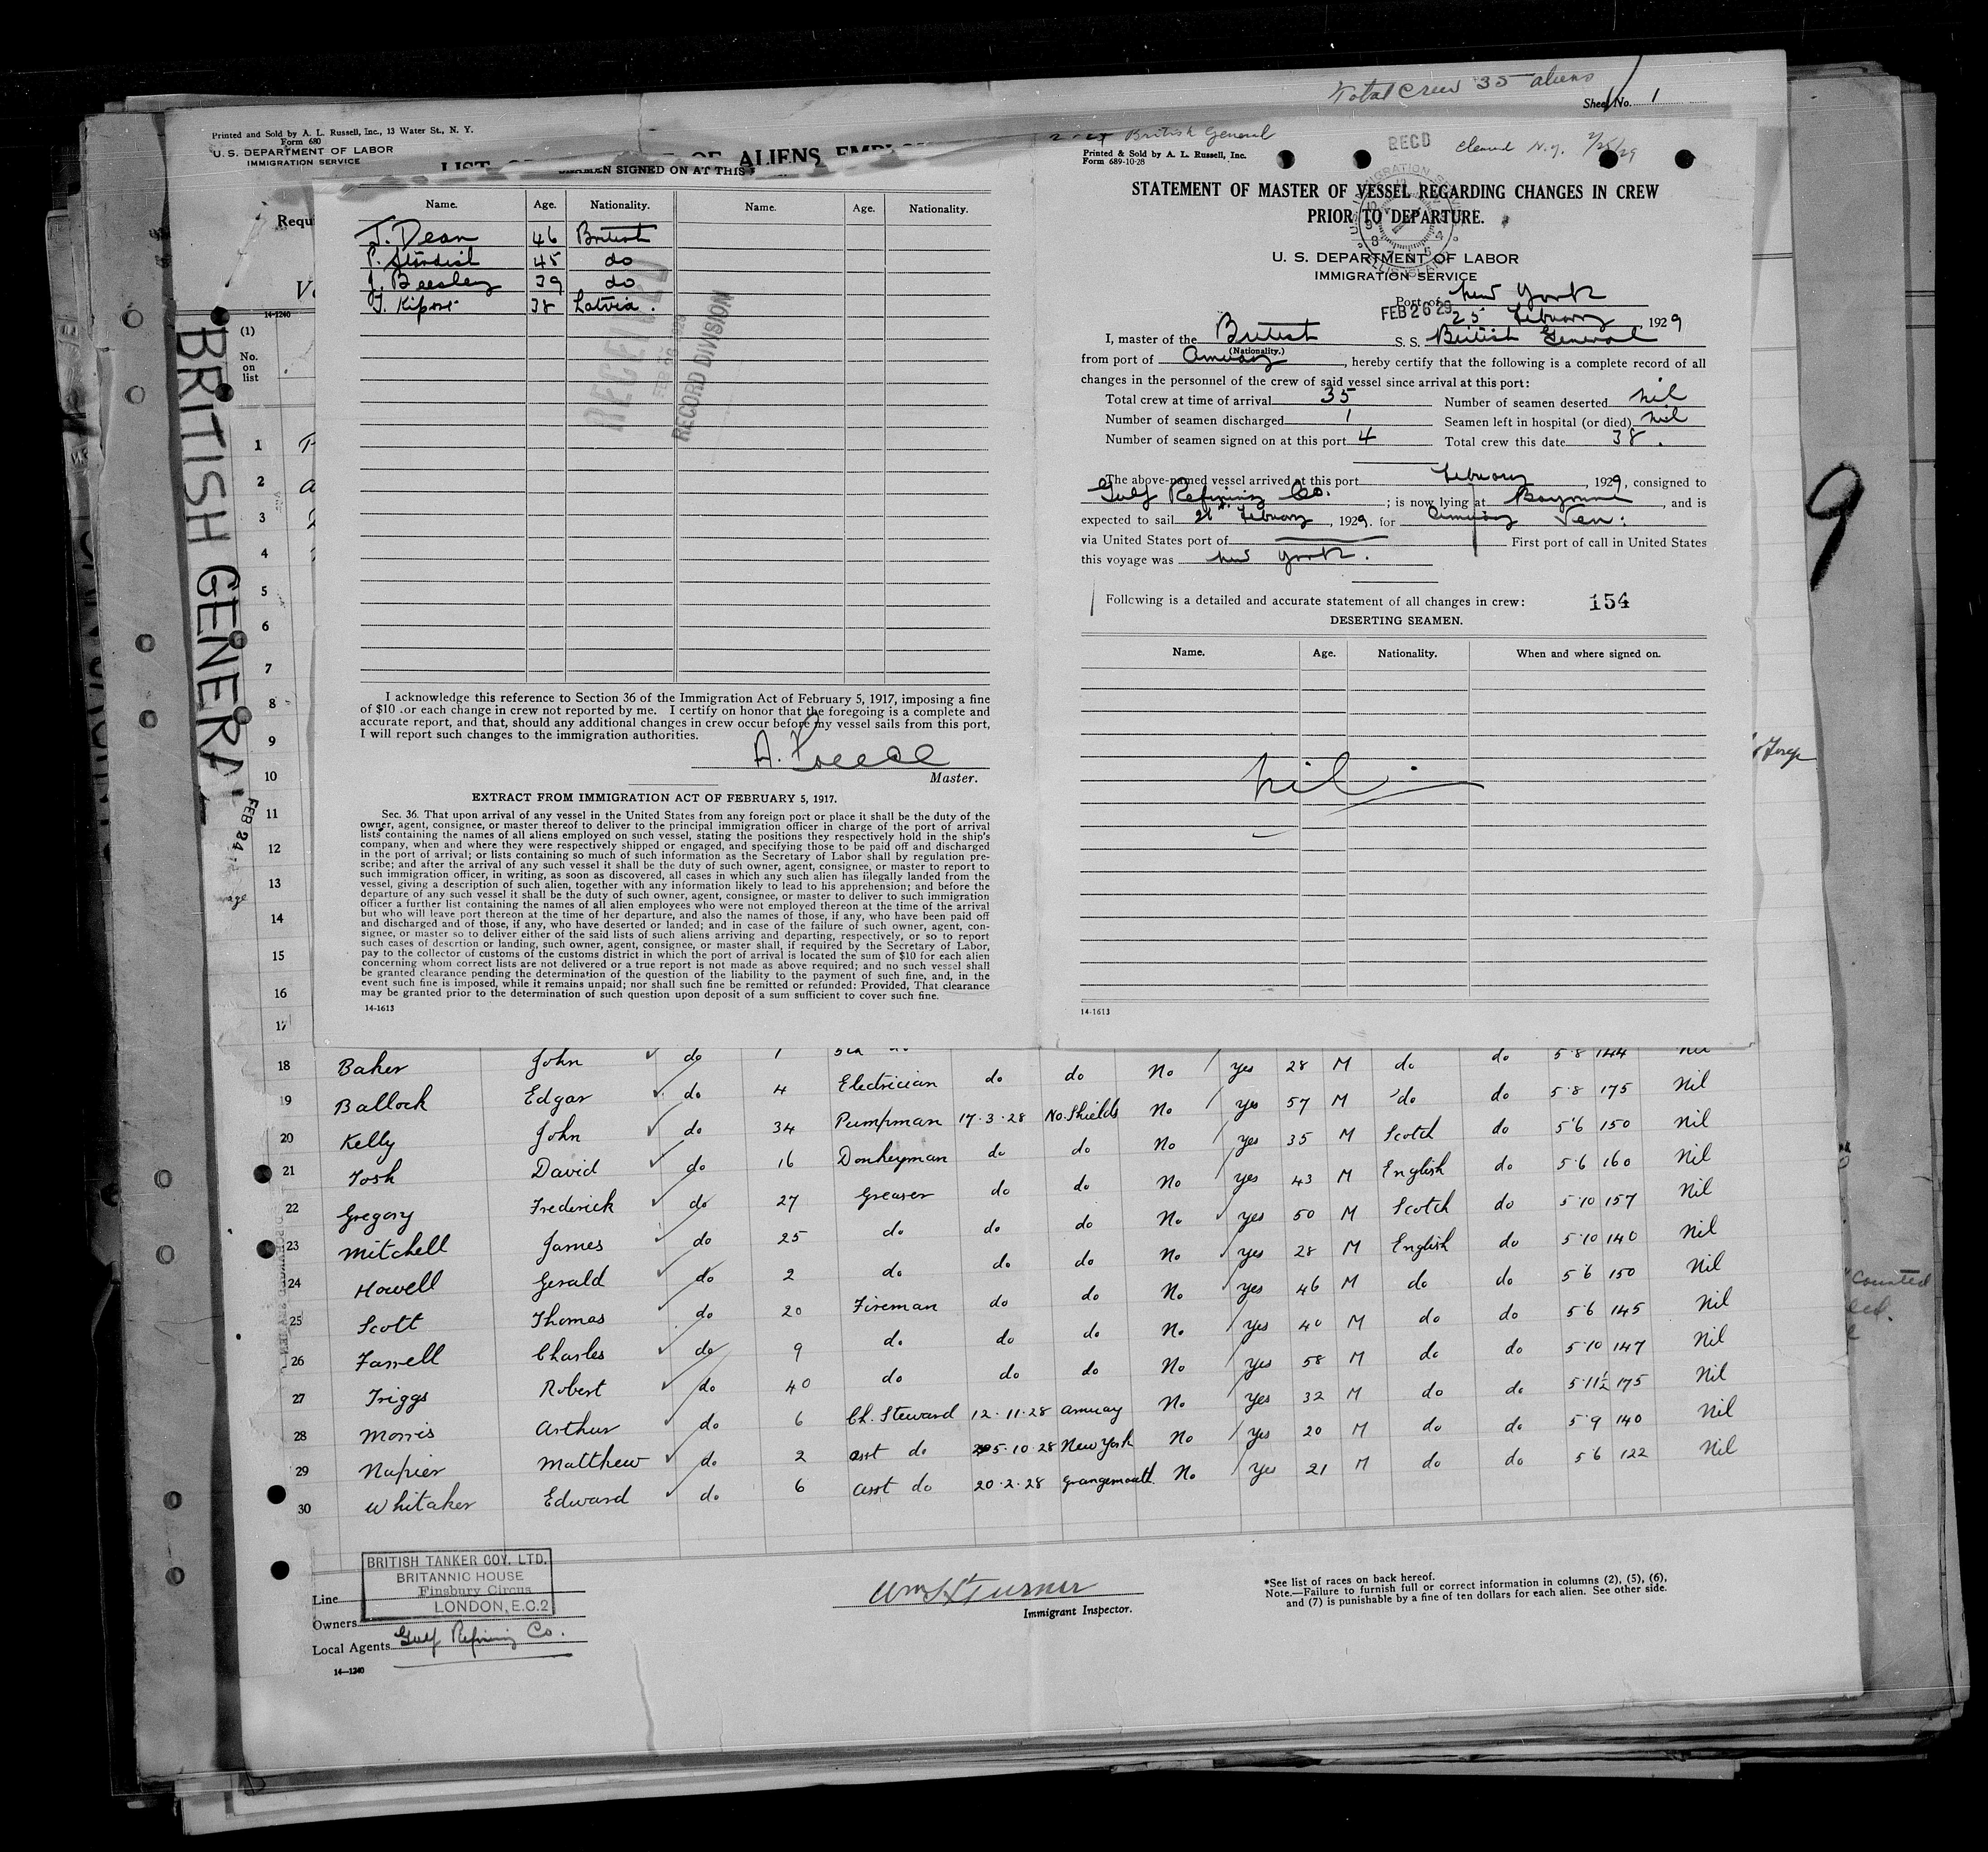 Total Crew 35 aliens
Sheet No. 1
Printed and Sold by A. L. Russell, Inc., 13 Water St., N. Y.
Form 680
U. S. DEPARTMENT OF LABOR
IMMIGRATION SERVICE
OF ALIENS
Requ
14-1240
(1)
No.
on
list
BRITISH GENERAL
FEB 24
SEAMEN SIGNED ON AT THIS
Name. Age. Nationality. Name. Age. Nationality.
J. Dean 46 British
P. Standish 45 do
J. Beesley 39 do
38 Latvia.
RECEIVED
RECORD DIVISION
I acknowledge this reference to Section 36 of the Immigration Act of February 5, 1917, imposing a fine
of $10 .or each change in crew not reported by me. I certify on honor that the foregoing is a complete and
accurate report, and that, should any additional changes in crew occur before my vessel sails from this port,
I will report such changes to the immigration authorities.
A. Preece
Master.
EXTRACT FROM IMMIGRATION ACT OF FEBRUARY 5, 1917.
Sec. 36. That upon arrival of any vessel in the United States from any foreign port or place it shall be the duty of the
owner, agent, consignee, or master thereof to deliver to the principal immigration officer in charge of the port of arrival
lists containing the names of all aliens employed on such vessel, stating the positions they respectively hold in the ship's
company, when and where they were respectively shipped or engaged, and specifying those to be paid off and discharged
in the port of arrival; or lists containing so much of such information as the Secretary of Labor shall by regulation pre-
scribe; and after the arrival of any such vessel it shall be the duty of such owner, agent, consignee, or master to report to
such immigration officer, in writing, as soon as discovered, all cases in which any such alien has illegally landed from the
vessel, giving a description of such alien, together with any information likely to lead to his apprehension; and before the
departure of any such vessel it shall be the duty of such owner, agent, consignee, or master to deliver to such immigration
officer a further list containing the names of all alien employees who were not employed thereon at the time of the arrival
but who will leave port thereon at the time of her departure, and also the names of those, if any, who have been paid off
and discharged and of those, if any, who have deserted or landed; and in case of the failure of such owner, agent, con-
signee, or master so to deliver either of the said lists of such aliens arriving and departing, respectively, or so to report
such cases of desertion or landing, such owner, agent, consignee, or master shall, if required by the Secretary of Labor,
pay to the collector of customs of the customs district in which the port of arrival is located the sum of $10 for each alien
concerning whom correct lists are not delivered or a true report is not made as above required; and no such vessel shall
be granted clearance pending the determination of the question of the liability to the payment of such fine, and, in the
event such fine is imposed, while it remains unpaid; nor shall such fine be remitted or refunded: Provided, That clearance
may be granted prior to the determination of such question upon deposit of a sum sufficient to cover such fine.
14-1613
British General
RECD
Cleared N.Y. 2/25/29
Printed & Sold by A. L. Russell, Inc.
Form 689-10-28
STATEMENT OF MASTER OF VESSEL REGARDING CHANGES IN CREW
PRIOR TO DEPARTURE.
U. S. DEPARTMENT OF LABOR
IMMIGRATION SERVICE
Port of New York
FEB 26 29
25 February, 1929
I, master of the British S. S. British General
(Nationality.)
from port of Amuay, hereby certify that the following is a complete record of all
changes in the personnel of the crew of said vessel since arrival at this port:
Total crew at time of arrival 35 Number of seamen deserted nil
Number of seamen discharged 1 Seamen left in hospital (or died) nil
Number of seamen signed on at this port 4 Total crew this date 38.
The above-named vessel arrived at this port February, 1929, consigned to
Gulf Refining Co.; is now lying at Bayonne, and is
expected to sail February, 1929. for Amuay Ven:
via United States port of First port of call in United States
this voyage was New York.
Following is a detailed and accurate statement of all changes in crew: 154
DESERTING SEAMEN.
Name. Age. Nationality. When and where signed on.
nil
14-1613
1
2
3
4
5
6
7
8
9
10
11
12
13
14
15
16
17
18 Baker John do 1 do No yes 28 M do do 5·8 144 nil
19 Ballock Edgar do 4 Electrician do do No yes 57 M do do 5·8 175 Nil
20 Kelly John do 34 Pumpman 17·3·28 No. Shields No yes 35 M Scotch do 5·6 150 Nil
21 Tosh David do 16 Donkeyman do do No yes 43 M English do 5·6 160 Nil
22 Gregory Frederick do 27 Greaser do do No yes 50 M Scotch do 5·10 157 Nil
23 Mitchell James do 25 do do do No yes 28 M English do 5·10 140 Nil
24 Howell Gerald do 2 do do do No yes 46 M do do 5·6 150 Nil
25 Scott Thomas do 20 Fireman do do No yes 40 M do do 5·6 145 Nil
26 Farrell Charles do 9 do do do No yes 58 M do do 5·10 147 Nil
27 Triggs Robert do 40 do do do No yes 32 M do do 5·11½ 175 Nil
28 Morris Arthur do 6 Ch. Steward 12·11·28 Amuay No yes 20 M do do 5·9 140 Nil
29 Napier Matthew do 2 asst do 5·10·28 New York No yes 21 M do do 5·6 122 Nil
30 Whitaker Edward do 6 asst do 20·2·28 Grangemouth No
BRITISH TANKER COY. LTD.
BRITANNIC HOUSE
Finsbury Circus
LONDON, E.C.2
Line
Owners
Local Agents Gulf Refining Co.
14-1240
Wm H Turner
Immigrant Inspector.
*See list of races on back hereof.
Note.—Failure to furnish full or correct information in columns (2), (5), (6),
and (7) is punishable by a fine of ten dollars for each alien. See other side.
9
Counted